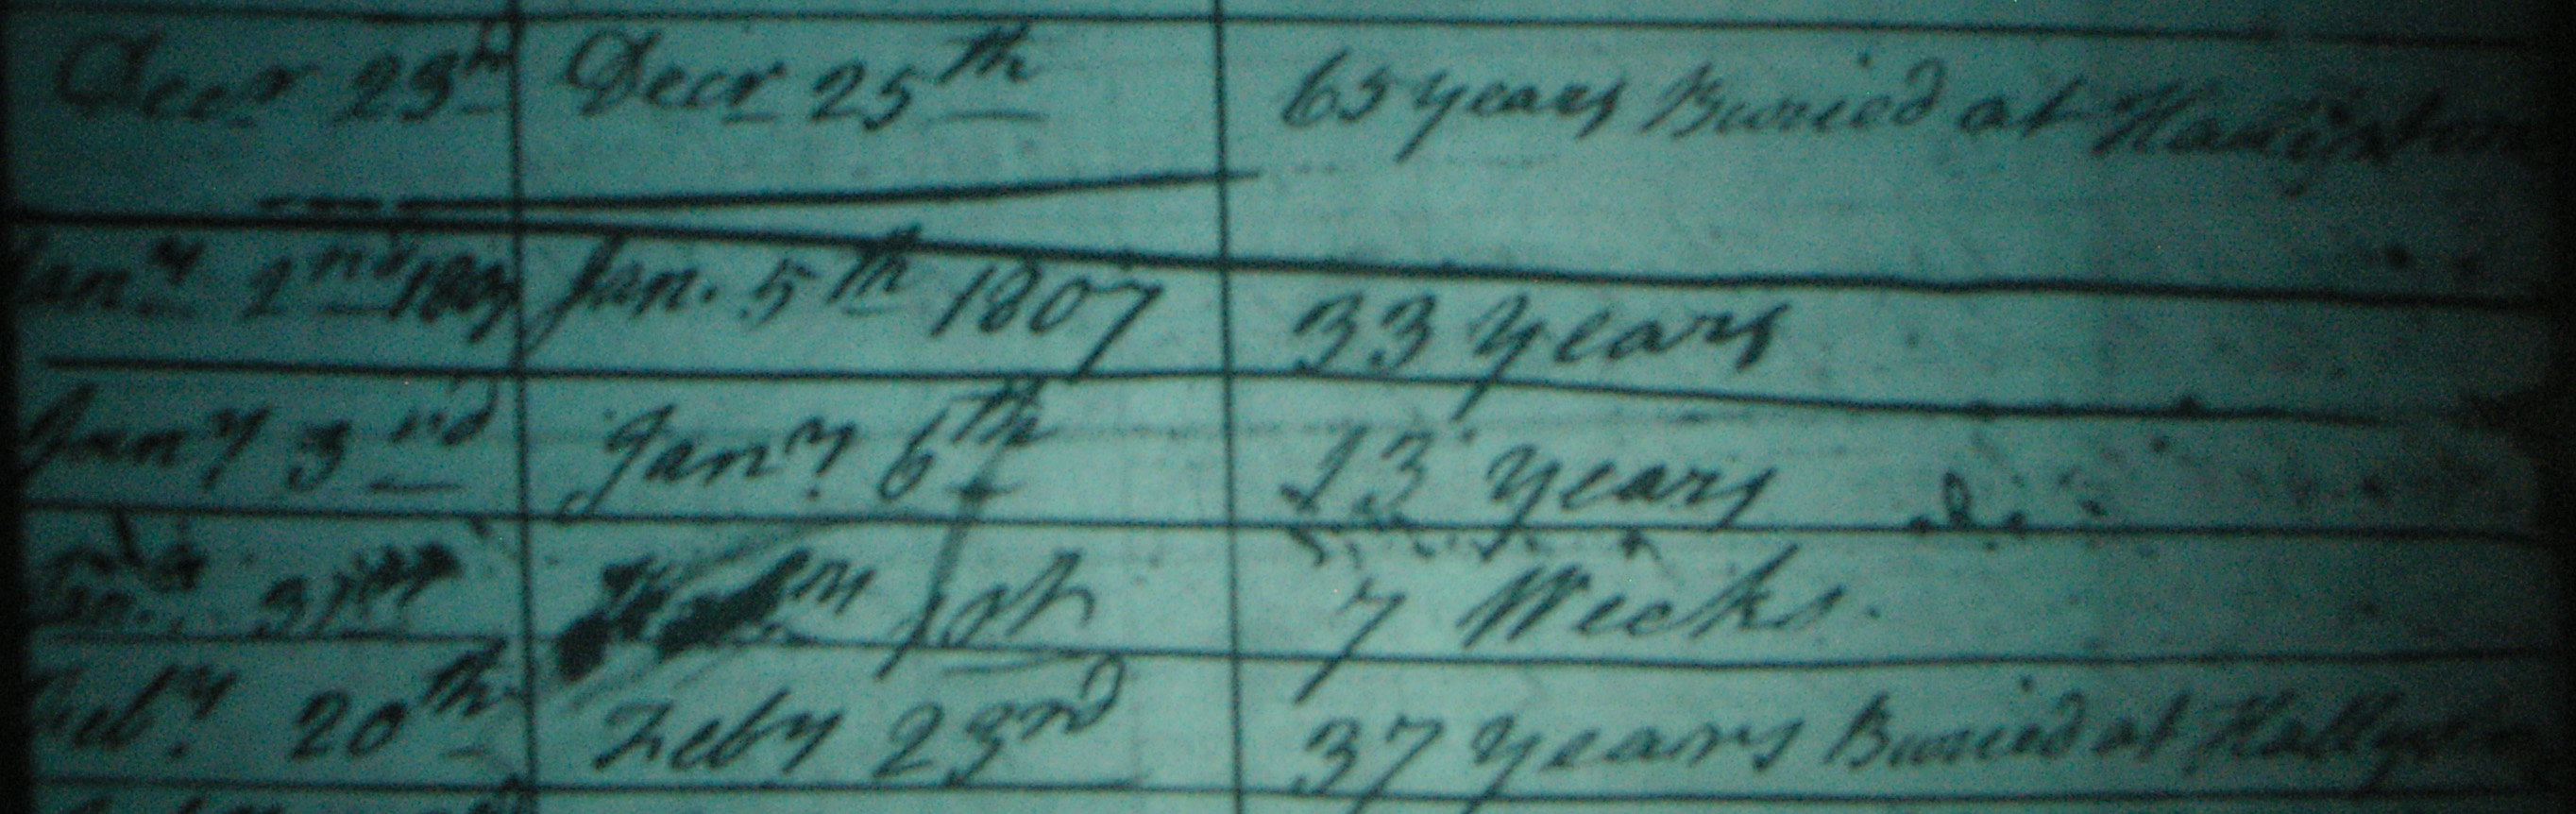 Decr 23rd Decr 25th 65 years Buried at
Jany 2nd 1807 Jan. 5th 1807 33 years
Jany 3rd Jany 6th 13 years
31st 1st 7 Weeks.
Feby 20th Feby 23rd 37 years Buried at